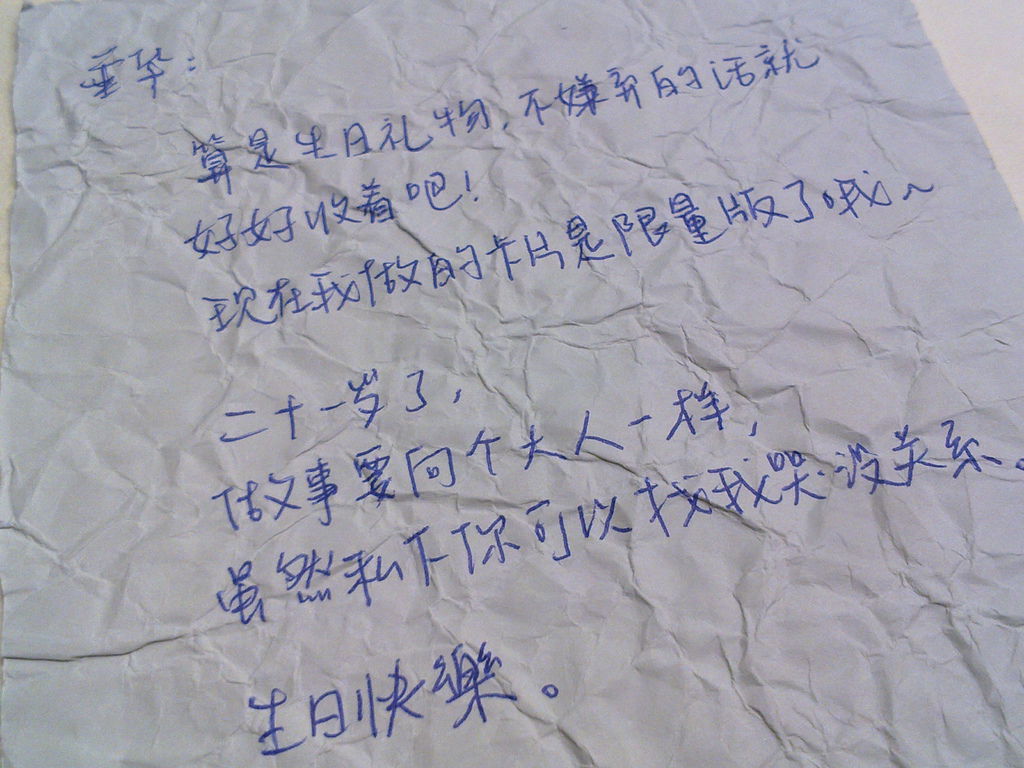 垂华：
算是生日礼物，不嫌弃的话就
好好收着吧！
现在我做的卡片是限量版了哦～
二十一岁了，
做事要向个大人一样，
虽然私下你可以找我哭没关系。
生日快樂。